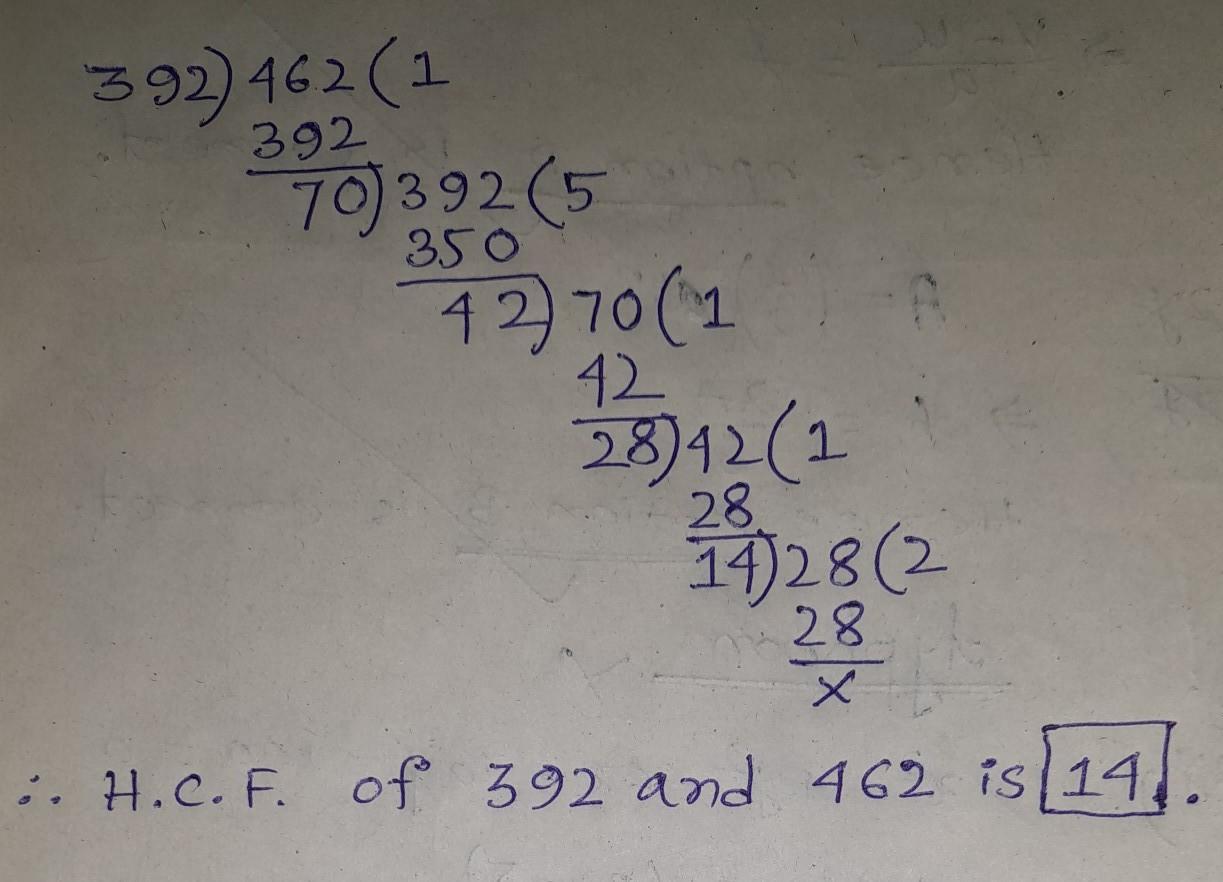 392) 462 ( 1
392
70) 392 ( 5
350
42) 70 ( 1
42
28) 42 ( 1
28
14) 28 ( 2
28
x
∴ H.C.F. of 392 and 462 is 14.